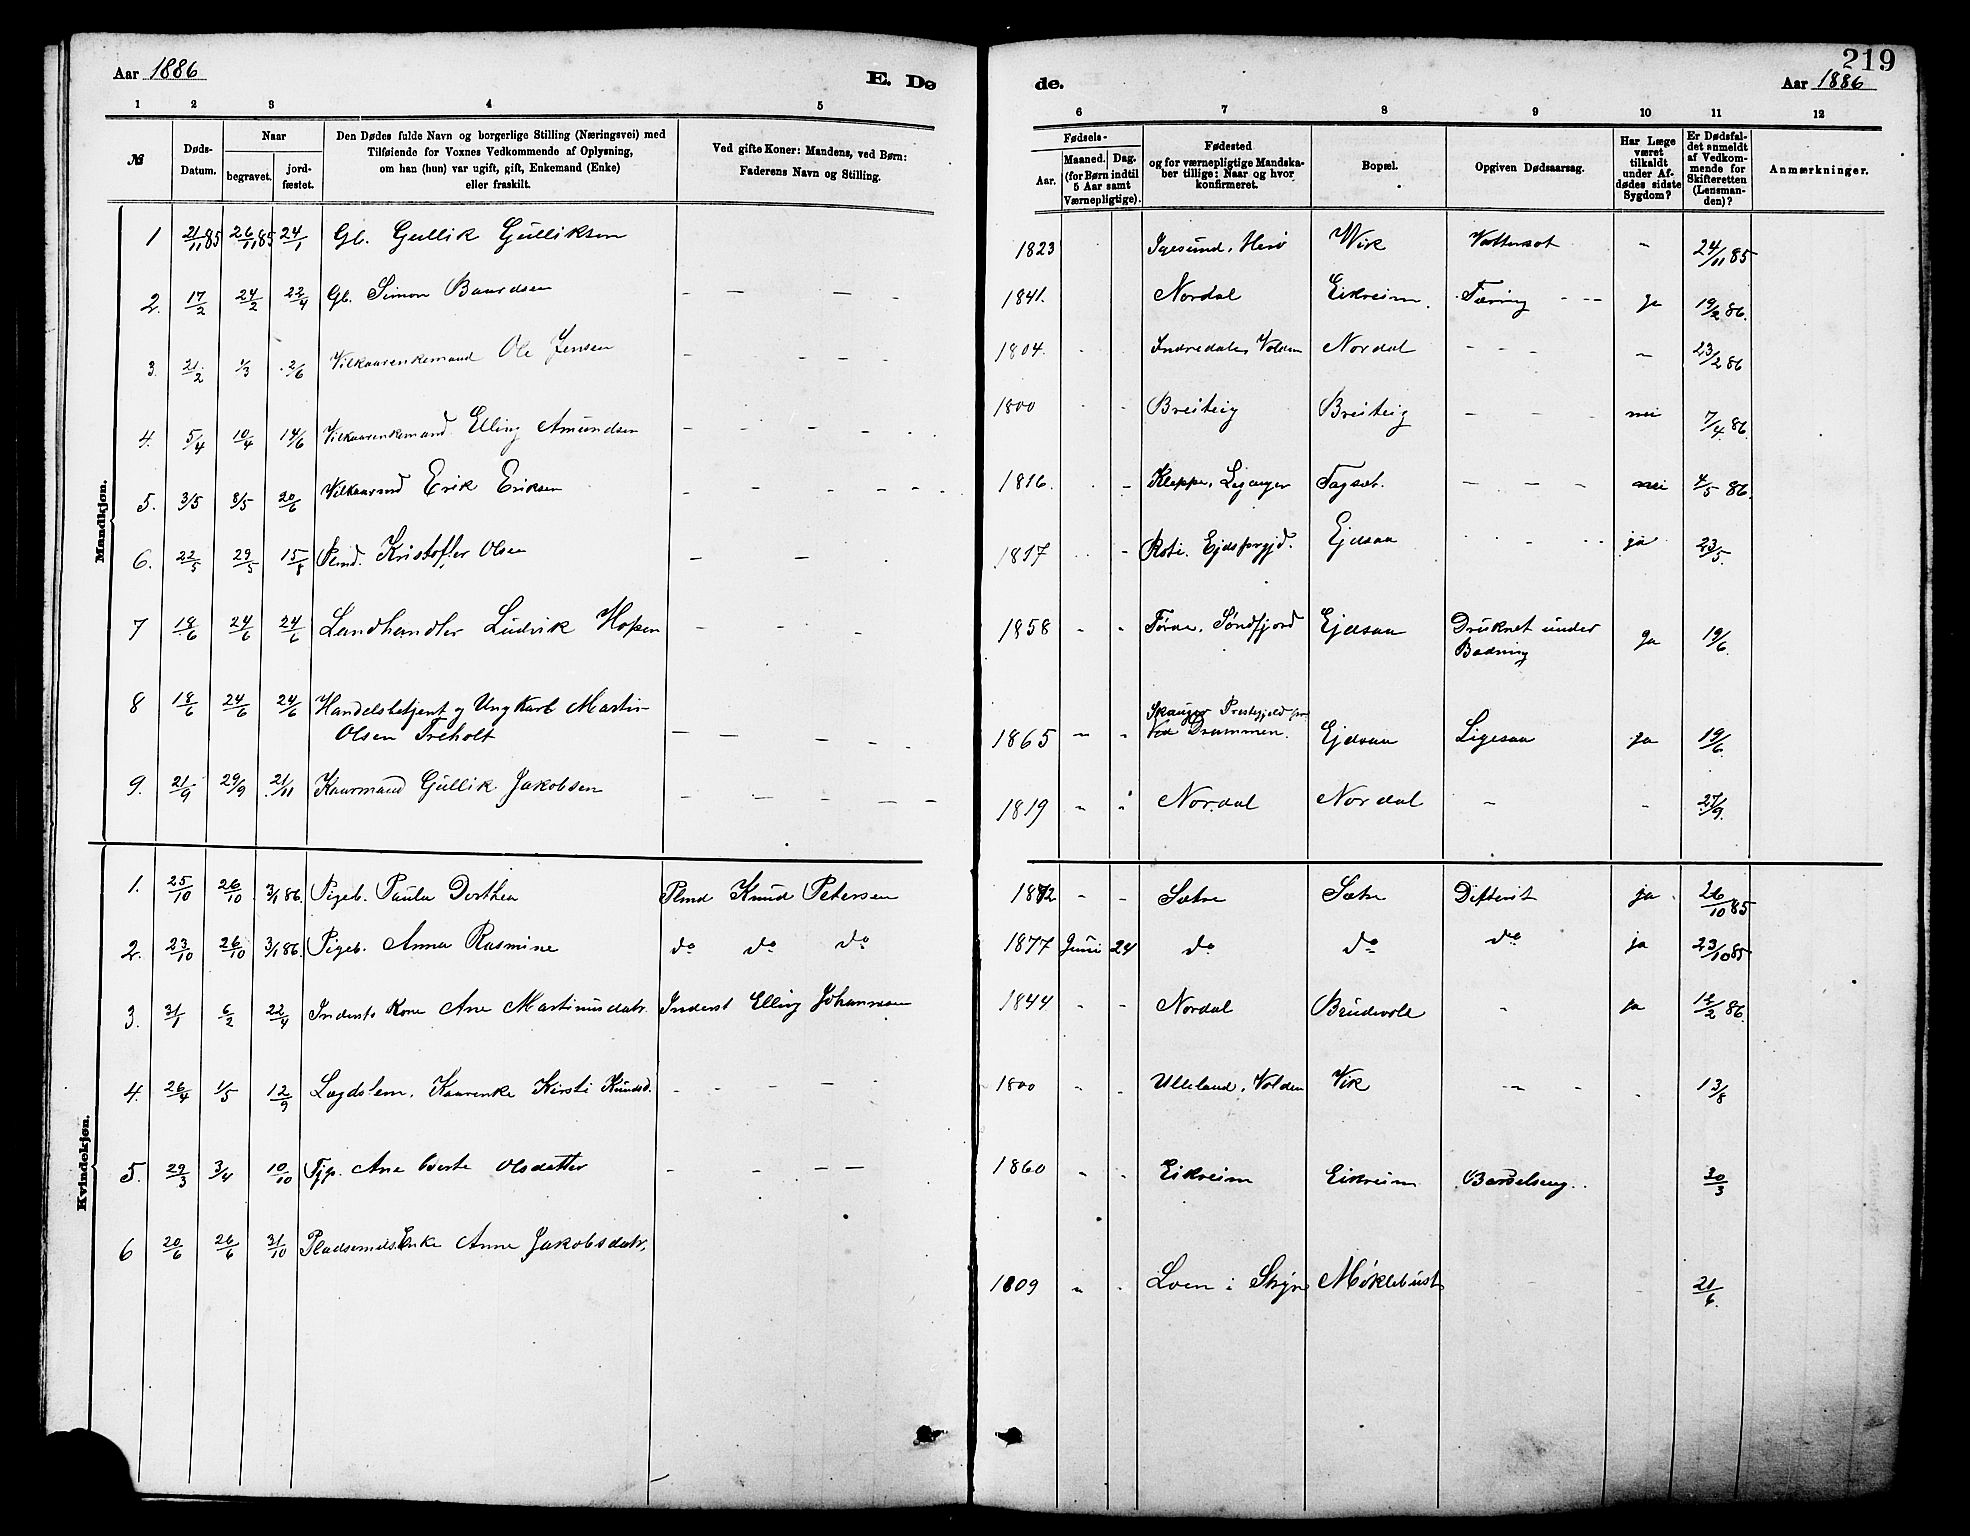 219
Aar 1886 E. Dø de. Aar 1886
1 2 3 4 5 6 7 8 9 10 11 12
№ Døds-Datum. Naar begravet. jordfæstet. Den Dødes fulde Navn og borgerlige Stilling (Næringsvei) med Tilføiende for Voxnes Vedkommende af Oplysning, om han (hun) var ugift, gift, Enkemand (Enke) eller fraskilt. Ved gifte Koner: Mandens, ved Børn: Faderens Navn og Stilling. Fødsels- Aar. Maaned. Dag. (for Børn indtil 5 Aar samt Værnepligtige). Fødested og for værnepligtige Mandskaber tillige: Naar og hvor konfirmeret. Bopæl. Opgiven Dødsaarsag. Har Læge været tilkaldt under Afdødes sidste Sygdom? Er Dødsfaldet anmeldt af Vedkommende for Skifteretten (Lensmanden)? Anmærkninger.
Mandkjøn.
1 21/11 85 26/11 85 24/1 Gb. Gullik Gulliksen 1823 Herø Wik Vattersot - 24/11 85
2. 17/2 24/2 22/4 Gb. Simon Baardsen - - - - 1841. Nordal Eikreim. Tæring - -- ja 19/2 86.
3. 21/2 1/3 2/6 Vilkaarenkemand Ole Jensen - - - 1804. Indredale, Volden Nordal - - - - 23/2 86
4. 5/4 10/4 14/6 Vilkaarenkemand Elling Amundsen - - - - - 1800 - - Breiteig Breiteig - - - nei 7/4 86.
5. 3/5 8/5 20/6 Vilkaarmd Erik Eriksen - - - - - 1816. - Kleppe, Tagset. - - - nei 4/5 86.
6. 22/5 29/5 15/8 Plmd. Kristoffer Olsen - - 1817 - Roti. Ejdsfrgjd. Ejdsaa - - - - ja 23/5.
7 18/6 24/6 24/6 Landhandler Ludvik Hopen - - - - 1858 - - Førde, Søndfjord Ejdsaa Druknet under Badning ja 19/6.
8 18/6 24/6 24/6 Handelsbetjent og Ungkarl Martin
Olsen Treholt - - - - - 1865 - - Skauger Prestegjeld
Ved Drammen. Ejdsaa Ligesaa ja 19/6
9. 21/9 29/9 21/11 Kaarmand Gullik Jakobsen - - - - - 1819 - - Nordal Nordal - - 27/9.
Kvindekjøn.
1. 25/10 26/10 3/1 86. Pigeb. Paula Dorthea Plmd Knud Petersen 1872 - - Sætre Sætre Difterit ja. 26/10 85
2. 23/10 26/10 3/1 86. Pigeb. Anna Rasmine do do do 1877 Juni 24 do do do ja 23/10 85
3. 31/1 6/2 22/4 Inderst Kone Ane Martinusdatr. Inderst Elling Johannesen 1844 - - Nordal Brudevold - ja 12/2 86.
4. 26/4 1/5 12/9 Lægdslem. Kaarenke Kirsti Knudsd. - - - - - 1800 - - Ulleland, Volden Vik - - - 13/8
5. 29/3 3/4 10/10 Tjp. Ane Berte Olsdatter - - - - 1860 - - Eikreim Eikreim Barselseng.. 30/3
6 20/6 26/6 31/10 Pladsemds.Enke Anne Jakobsdatr. 1809 - - Loen i Stryn Møklebust - 21/6.